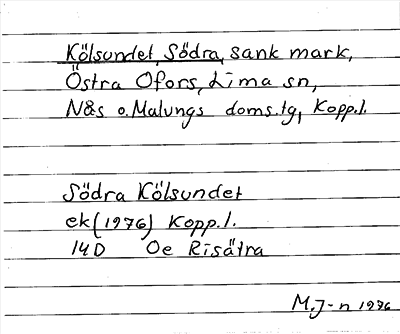 Kölsundet, Södra, sank mark,
Östra Ofors, Lima sn,
Nås o. Malungs doms.tg, Kopp.l.
Södra Kölsundet
ek (1976) Kopp.l.
14D Oe Risätra
M.J-n 1976